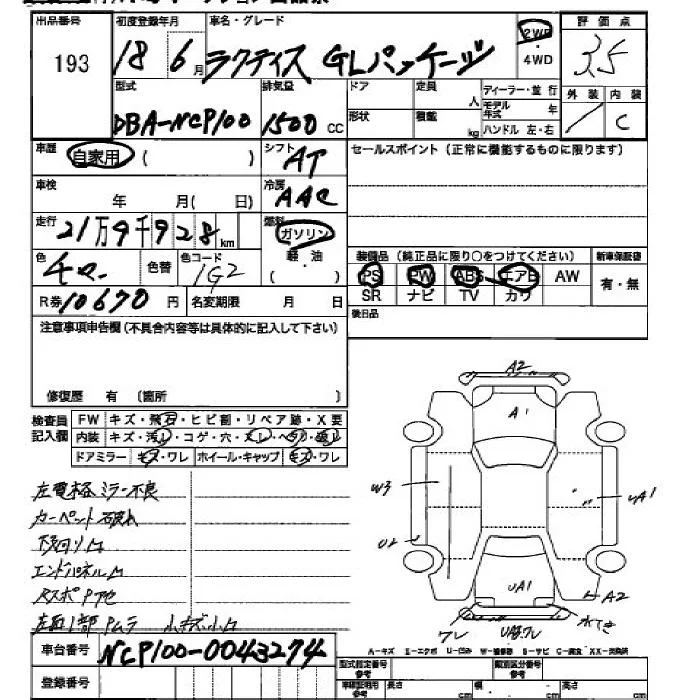 出品番号 初度登録年月 車名・グレード 評価点
193 18 6月 ラクティス GLパッケージ 2WD・4WD 3.5
外装 内装
C
型式 排気量 ドア 定員 人 ディーラー・並行
DBA-NCP100 1500 CC 形状 積載 kg モデル年式 年
ハンドル 左・右
車歴 自家用 ( ) シフト AT セールスポイント(正常に機能するものに限ります)
車検 年 月( 日) 冷房 AAC
走行 21万9千928km 燃料 ガソリン
軽・油
( )
色 色替 色コード 1G2
装備品(純正品に限り○をつけてください) 新車保証書
PS PW ABS エアB AW 有・無
SR ナビ TV カワ
R券 10670円 名変期限 月 日
後日品
注意事項申告欄(不具合内容等は具体的に記入して下さい)
修復歴 有 (箇所 )
検査員記入欄
FW キズ・飛石・ヒビ割・リペア跡・X要
内装 キズ・汚れ・コゲ・穴・スレ・ヘタリ・破れ
ドアミラー キズ・ワレ ホイール・キャップ キズ・ワレ
左電格ミラー不良
カーペット破れ
下回り
エンドパネル
A2
A1
W3
UA1
UA1
A2
ワレ
A-キズ E-エクボ U-凹み W-補修跡 S-サビ C-腐食 XX-交換済
車台番号 NCP100-0043274
登録番号
型式指定番号 参考 類別区分番号 参考
車検証明用 参考 長さ cm 幅 cm 高さ cm